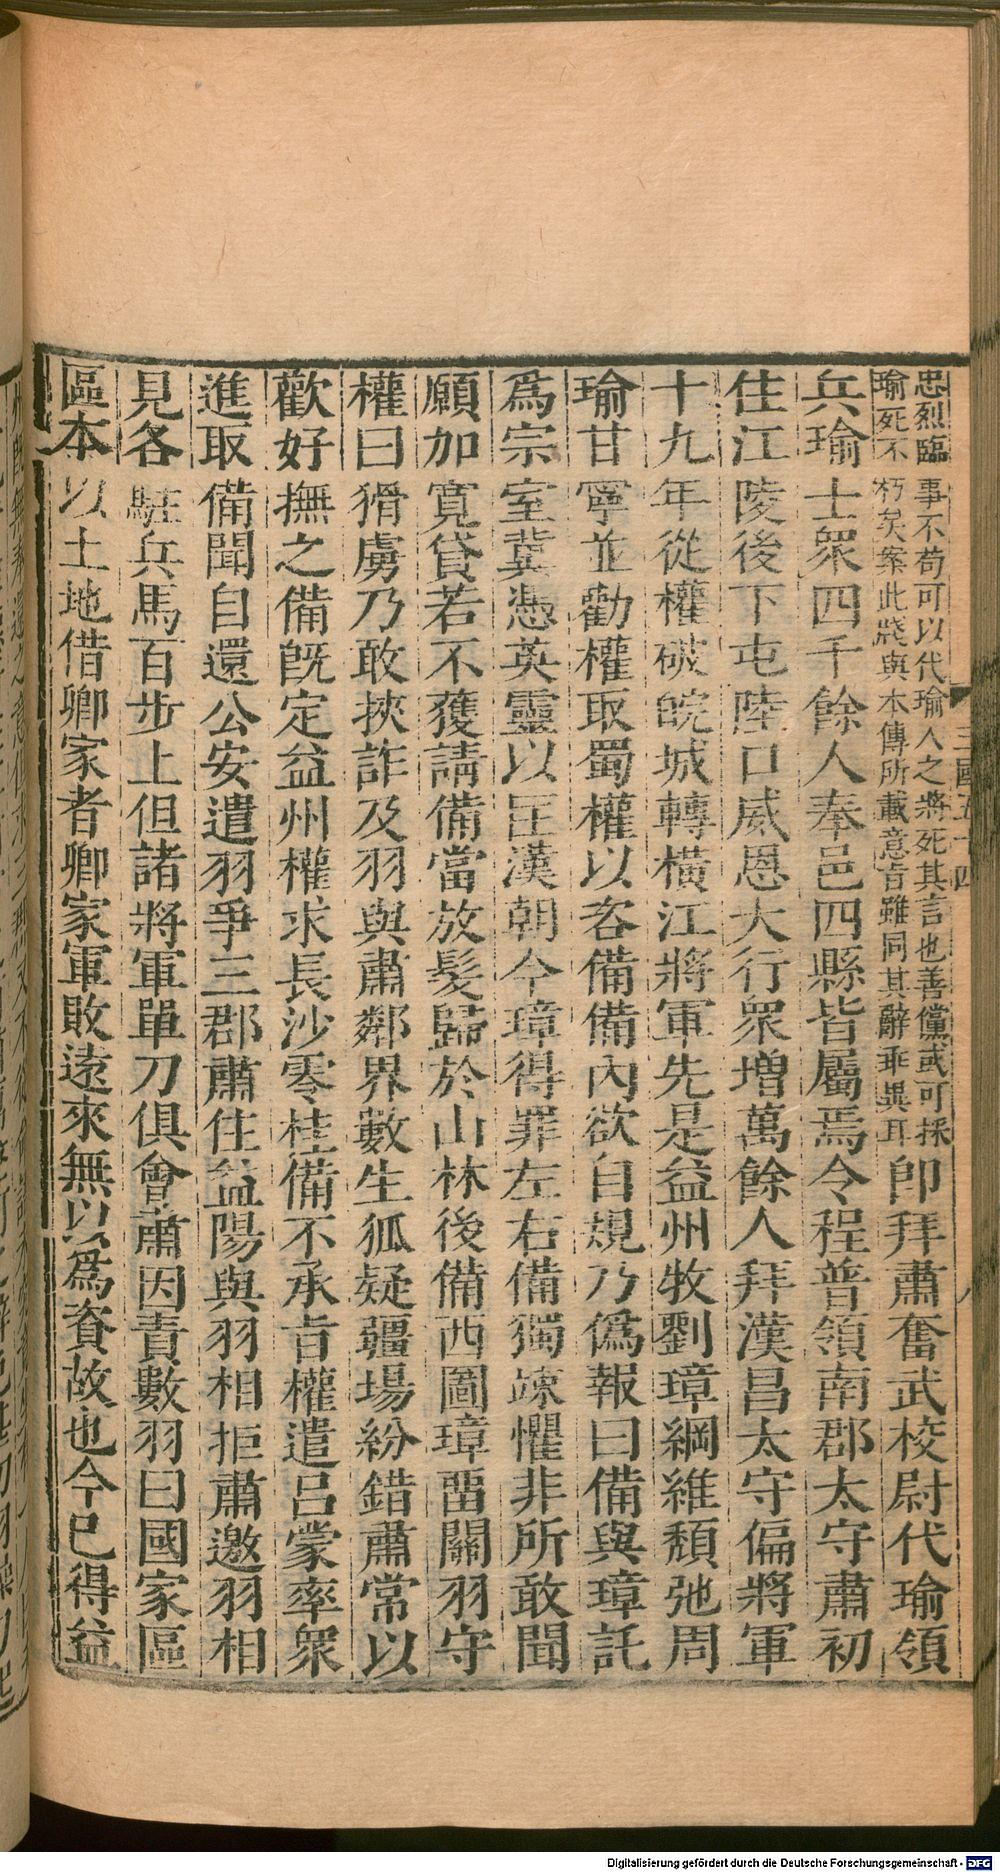 忠烈臨事不苟可以代瑜人之將死其言也善儻或可採
瑜死不朽矣案此牋與本傳所載意旨雖同其辭乖異耳
卽拜肅奮武校尉代瑜領
兵瑜士衆四千餘人奉邑四縣皆屬焉令程普領南郡太守肅初
住江陵後下屯陸口威恩大行衆增萬餘人拜漢昌太守偏將軍
十九年從權破皖城轉橫江將軍先是益州牧劉璋綱維頹弛周
瑜甘寧並勸權取蜀權以咨備備內欲自規乃僞報曰備與璋託
爲宗室冀憑英靈以匡漢朝今璋得罪左右備獨竦懼非所敢聞
願加寬貸若不獲請備當放髮歸於山林後備西圖璋畱關羽守
權曰猾虜乃敢挾詐及羽與肅鄰界數生狐疑疆場紛錯肅常以
歡好撫之備旣定益州權求長沙零桂備不承旨權遣呂蒙率衆
進取備聞自還公安遣羽爭三郡肅住益陽與羽相拒肅邀羽相
見各駐兵馬百步上但諸將軍單刀俱會肅因責數羽曰國家區
區本以土地借卿家者卿家軍敗遠來無以爲資故也今已得益
三國五十四
八
Digitalisierung gefördert durch die Deutsche Forschungsgemeinschaft - DFG